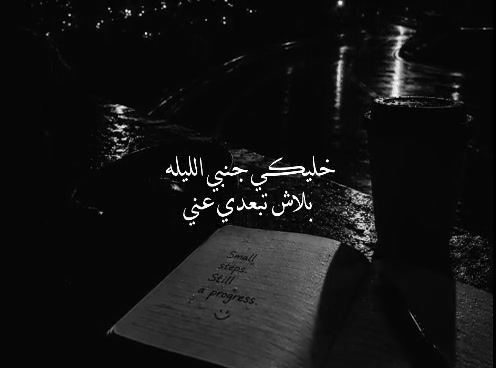 خليكي جنبي الليله
بلاش تبعدي عني
Small
steps.
Still
a progress.